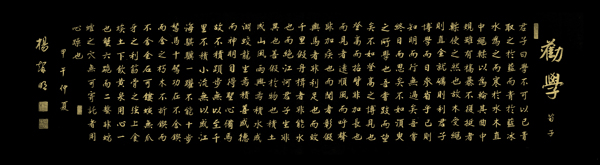 勸學
荀子
君子曰學不可以已青
取之於藍而青於藍冰
水為之而寒於水木直
中繩輮以為輪其曲中
規雖有槁暴不復挺者
輮使之然也故木受繩
則直金就礪則利君子
博學而日參省乎己則
知明而行無過矣吾嘗
終日而思矣不如須臾
之所學也吾嘗跂而望
矣不如登高之博見也
登高而招臂非加長也
而見者遠順風而呼聲
非加疾也而聞者彰假
輿馬者非利足也而致
千里假舟楫者非能水
也而絕江河君子生非
異也善假於物也積土
成山風雨興焉積水成
淵蛟龍生焉積善成德
而神明自得聖心備焉
故不積蹞步無以至千
里不積小流無以成江
海騏驥一躍不能十步
駑馬十駕功在不舍鍥
而舍之朽木不折鍥而
不舍金石可鏤螾無爪
牙之利筋骨之強上食
埃土下飲黃泉用心一
也蟹六跪而二螯非蛇
蟺之穴無可寄託者用
心躁也
甲午仲夏
楊